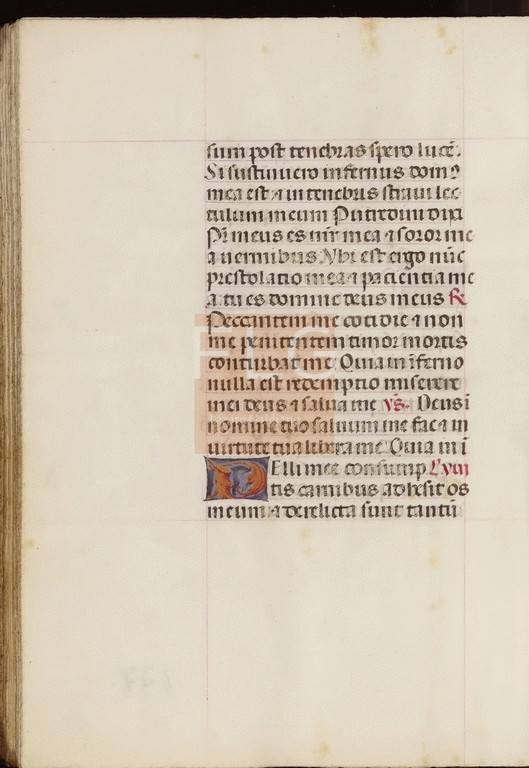 sum post tenebras spero lucē.
Si sustinuero infernus domꝰ
mea est ⁊ in tenebris straui lec
tulum meum Putredini dixi
Pr̄ meus es mr̄ mea ⁊ soror me
a uermibus. Vbi est ergo nūc
prestolatio mea ⁊ paciencia me
a. tu es domine deus meus ℟
Peccantem me cotidie ⁊ non
me penitentem timor mortis
conturbat me. Quia in īferno
nulla est redemptio miserere
mei deus ⁊ salua me v̄s. Deus ī
nomine tuo saluum me fac ⁊ in
uirtute tua libera me. Quia in ī
PElli mee consump Lc̄ viii
tis carnibus adhesit os
meum ⁊ derelicta sunt tantū
FLG